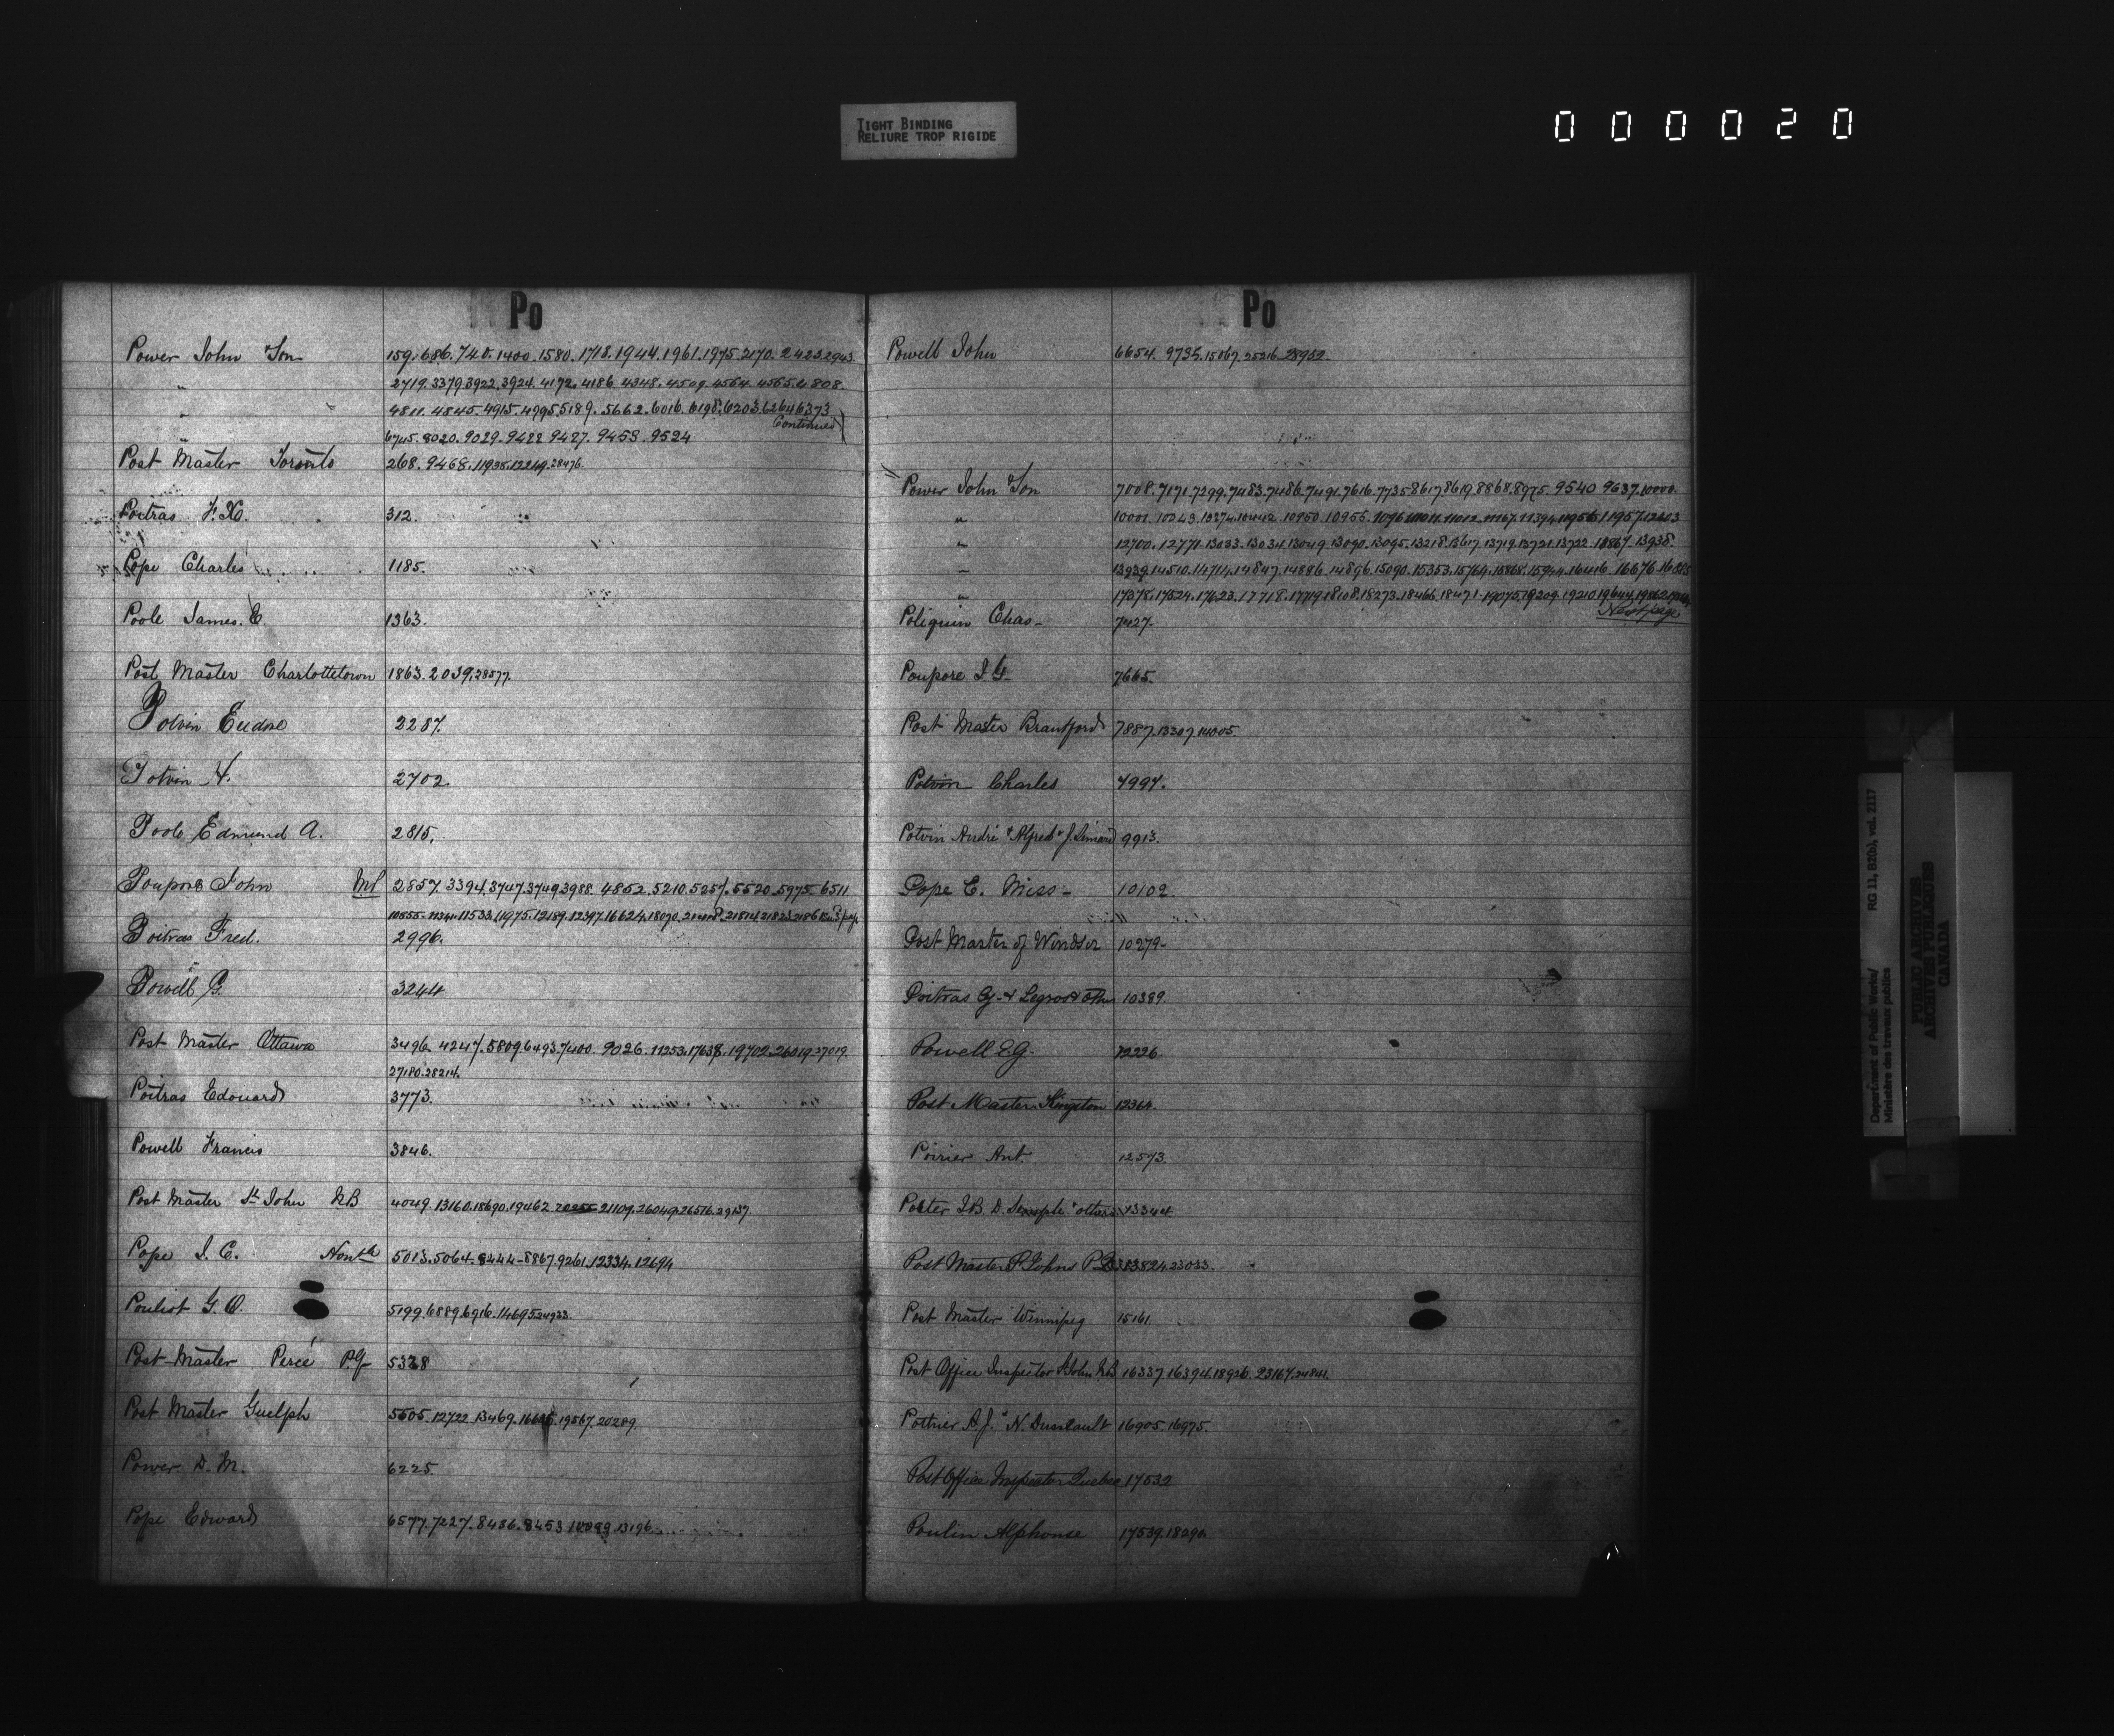 TIGHT BINDING
RELIURE TROP RIGIDE
000020
Po
Power John & Son 159. 686. 740. 1400. 1580. 1718. 1944. 1961. 1975. 2170. 2423. 2943
" 2719. 3379. 3922. 3924. 4172. 4186. 4348. 4509. 4564. 4565. 4808.
" 4811. 4845. 4915. 4995. 5189. 5662. 6016. 6198. 6203. 6264. 6373
Continued
" 6745. 8020. 9029. 9422. 9427. 9453. 9524
Post Master Toronto 268. 9468. 11938. 12249. 28476.
Poitras F. X. 312.
Pope Charles 1185.
Poole James. E. 1363.
Post Master Charlottetown 1863. 2039. 28577.
Potvin Eudore 2287.
Potvin H. 2702
Poole Edmund A. 2815.
Poupore John MP 2857. 3394. 3747. 3749. 3988. 4852. 5210. 5257. 5520. 5975. 6511
10555. 11533. 11975. 12189. 12397. 16624. 18070. 21814. 21823.
Poitras Fred. 2996.
Powell G. 3244
Post Master Ottawa 3496. 4247. 5809. 6493. 7400. 9026. 11253. 17638. 19702. 26019. 27019.
27180. 28214.
Poitras Edouard 3773.
Powell Francis 3846.
Post Master St John NB 4049. 13160. 18690. 19462. 20255. 21109. 26049. 26516. 29137.
Pope J. C. Honble 5013. 5064. 8444. 8867. 9261. 12334. 12694
Pouliot G. O. 5199. 6889. 6916. 14695. 24933.
Post Master Percé P.Q 5328
Post Master Guelph 5505. 12722. 13469. 19567. 20289.
Power D. M. 6225.
Pope Edward 6577. 7227. 8436. 8453. 13196.
Po
Powell John 6654. 9735. 15867. 25216. 28952.
Power John & Son 7008. 7171. 7299. 7483. 7486. 7491. 7616. 7735. 8617. 8619. 8868. 8975. 9540. 9637. 10000.
" 10001. 10043. 10274. 10442. 10950. 10955. 11011. 11012. 11167. 11394. 11956. 11957. 12603
" 12700. 12771. 13033. 13034. 13049. 13090. 13095. 13218. 13617. 13719. 13721. 13722. 13867. 13938.
" 13939. 14510. 14714. 14847. 14886. 14896. 15090. 15353. 15764. 15868. 15944. 16416. 16676.
" 17378. 17524. 17623. 17718. 17719. 18108. 18273. 18466. 18471. 19075. 19209. 19210. 19644. 19862.
Next page
Poliquin Chas 7427.
Poupore J. G. 7665.
Post Master Brantford 7887. 13307. 14005.
Potvin Charles 7997.
Potvin André & Alfred & J. Simard 9913.
Pope E. Miss 10102
Post Master of Windsor 10279
Poitras G. & Legros & Others 10389.
Powell E. G. 12226.
Post Master Kingston 12364.
Poirier Ant. 12573.
Porter J. B. D. Semple & others 13344.
Post Master St Johns P.Q 13824. 23033.
Post Master Winnipeg 15161.
Post Office Inspector St John NB 16337. 16394. 18926. 23167. 24841.
Pothier A. J. & N. Dussault 16905. 16975.
Post Office Inspector Quebec 17532
Poulin Alphonse 17539. 18290.
Department of Public Works/ RG 11, B2(b), vol. 2117
Ministère des travaux publics
PUBLIC ARCHIVES
ARCHIVES PUBLIQUES
CANADA